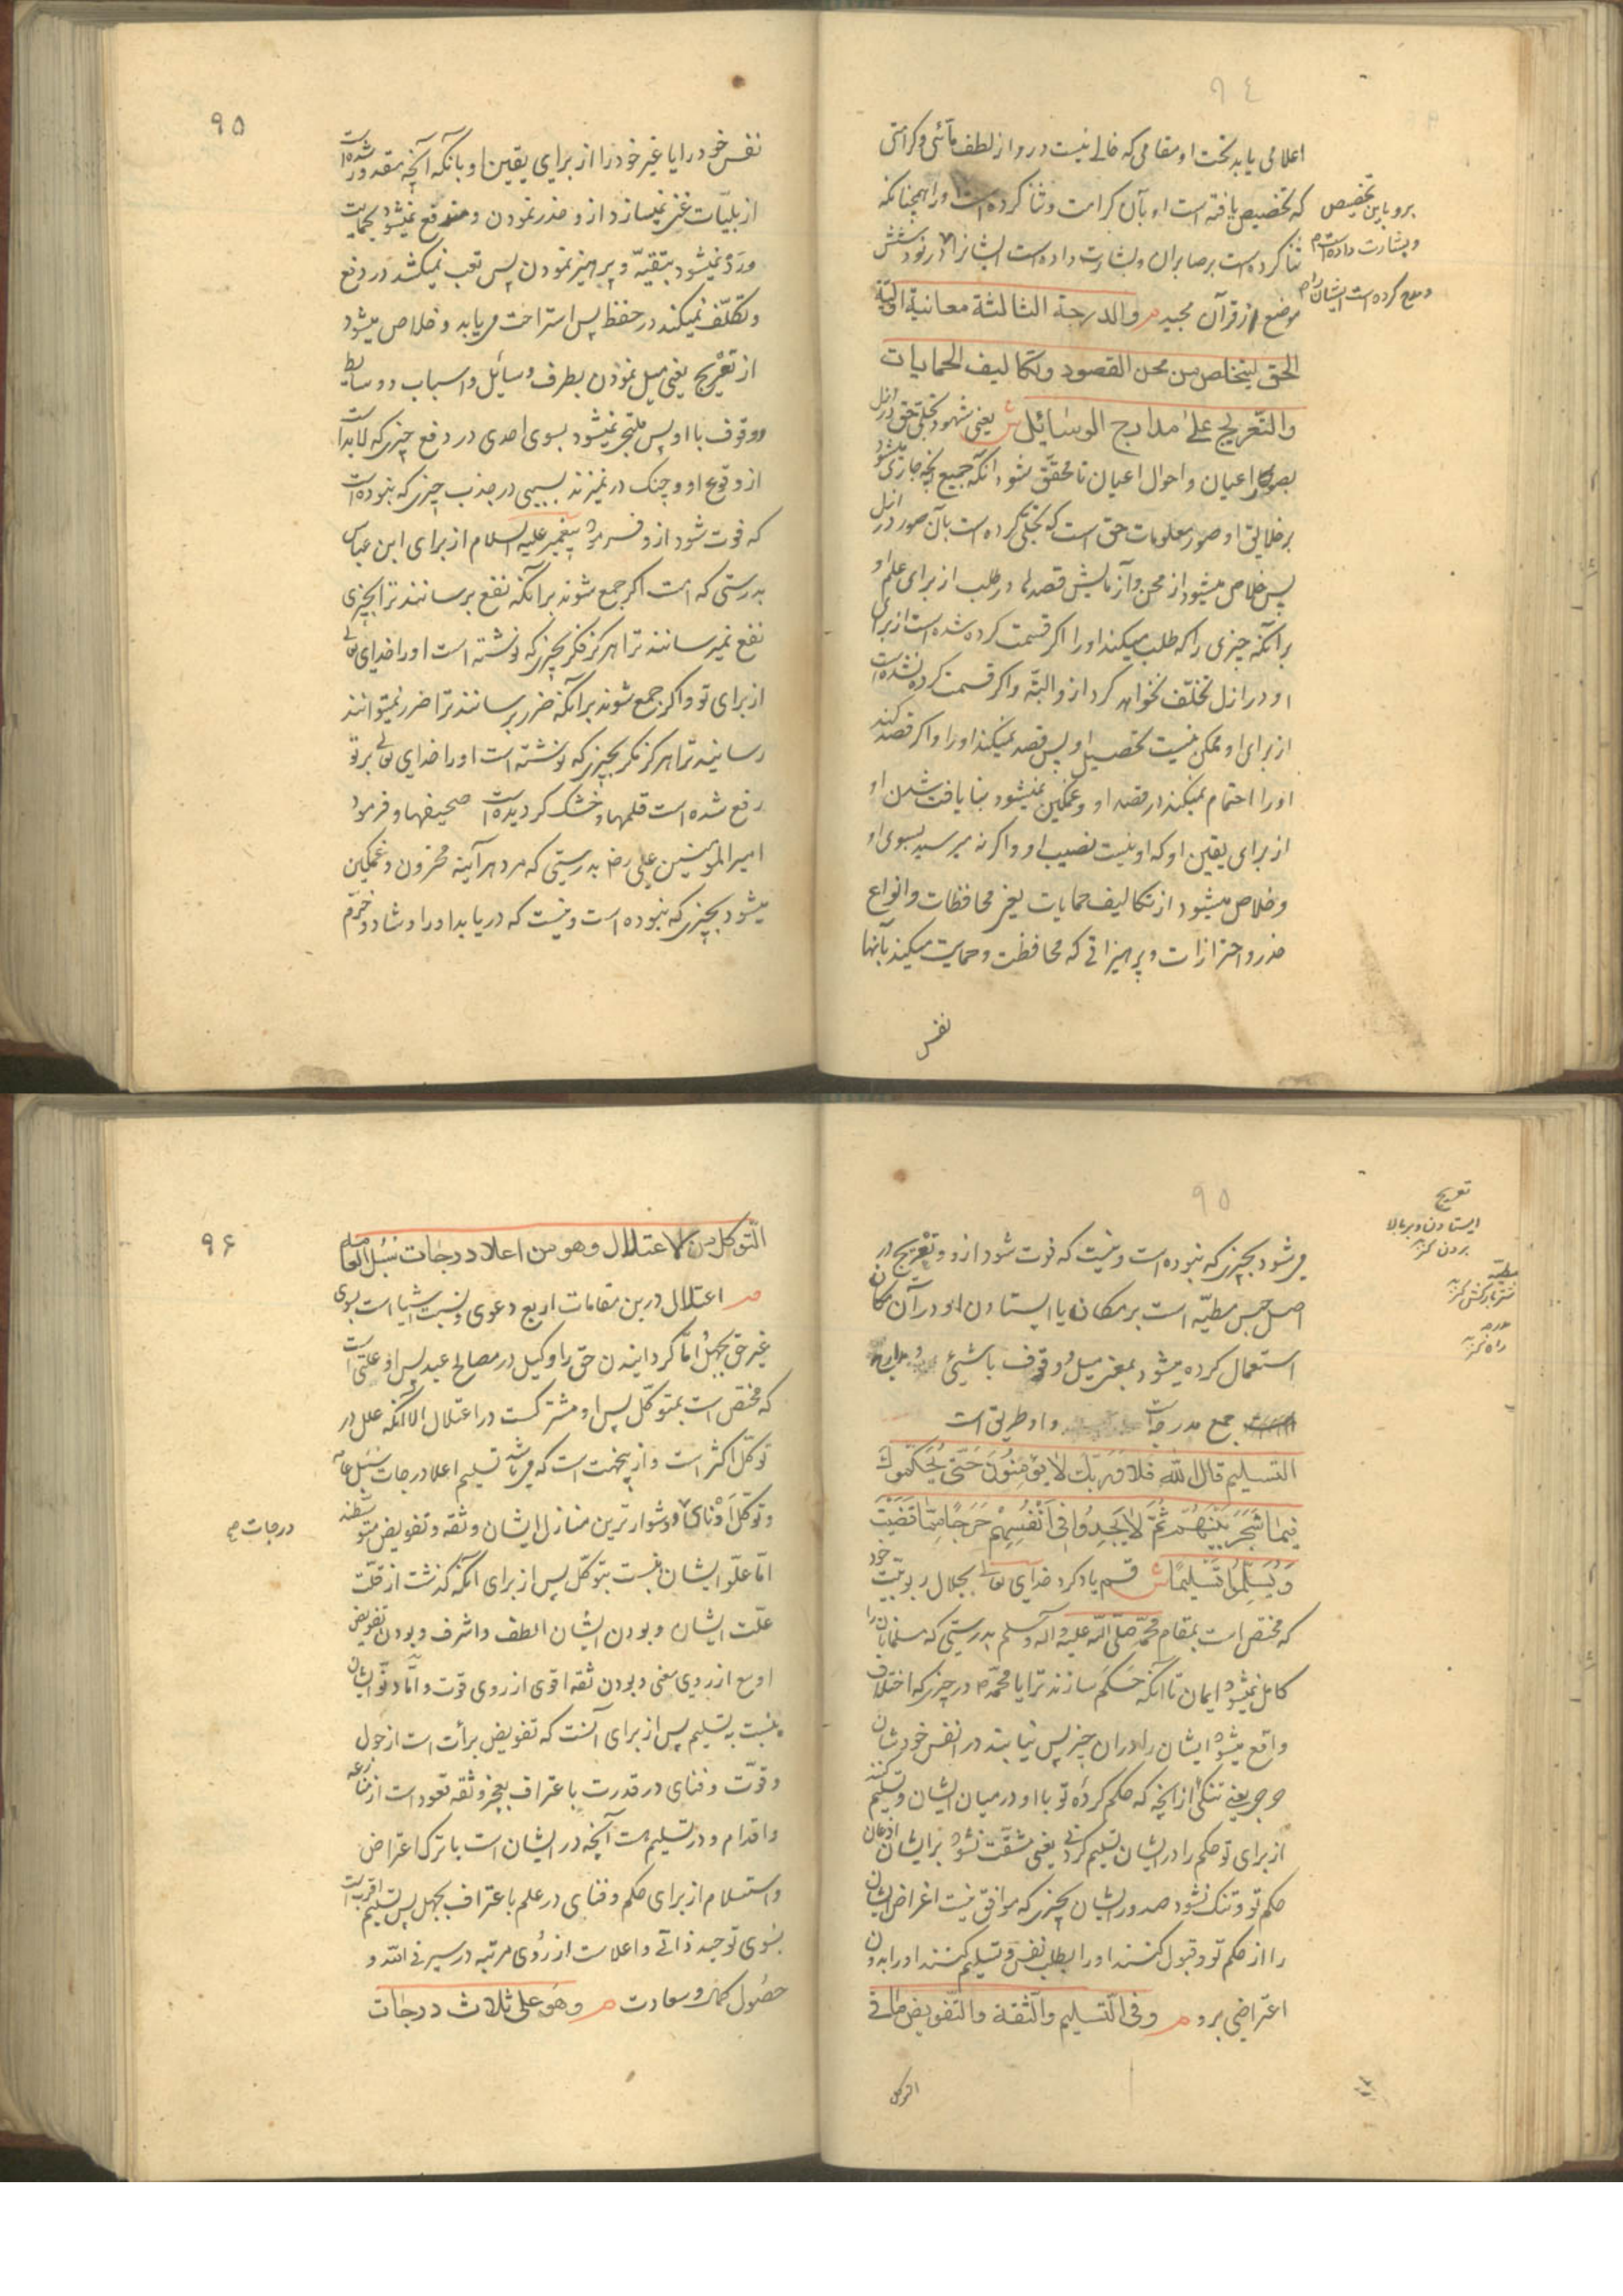 ٩٤
اعلامی یابد تحت او مقامی که خالی نیست درو از لطف مآئی و کرامتی
که تخصیص یافته است او بآن کرامت و ثنا کرده است او را همچنانکه
ثنا کرده است بر صابران و بشارت داده است ایشانرا در نود شش
موضع از قرآن مجید م والدرجة الثالثة معاینة اولیة
الحق لیتخلص من محن القصود وتکالیف الحمایات
والتعریج علی مدارج الوسائل ش یعنی شهود تجلی حق در ازل
بصور اعیان و احوال اعیان تا محقق شود آنکه جمیع آنچه جاری میشود
بر خلایق او صور معلومات حق است که تجلی کرده است بآن صور در ازل
پس خلاص میشود از محن و آزمایش قصدها در طلب از برای علم او
برآنکه چیزی را که طلب میکند او را اگر قسمت کرده شده است از برای
او در ازل تخلف نخواهد کرد ازو البته و اگر قسمت کرده نشده است
از برای او ممکن نیست تحصیل او پس قصد نمیکند او را و اگر قصد کند
او را اهتمام نمیکند در قصد او و غمکین نمیشود بنا یافت شدن او
از برای یقین او که او نیست نصیب او و اگر نه میرسید بسوی او
و خلاص میشود از تکالیف حمایات یعنی محافظات و انواع
حذر و احترازات و پرهیزاتی که محافظت و حمایت میکند بآنها
نفس
برو باین تخصیص
و بشارت داده است م
و مدح کرده است ایشانرا م
٩٥
نفس خود را یا غیر خود را از برای یقین او بانکه آنچه مقدور شده است
از بلیات غنی نمیسازد ازو حذر نمودن و مندفع نمیشود بحمایت
ورد نمیشود بتقیه و پرهیز نمودن پس تعب نمیکشد در دفع
و تکلف نمیکند در حفظ پس استراحت می‌یابد و خلاص میشود
از تعریج یعنی میل نمودن بطرف وسائل و اسباب و وسایط
و وقوف با او پس ملتجی نمیشود بسوی احدی در دفع چیزی که لابد است
از وقوع او و چنک در نمیزند بسببی در جذب چیزی که نبوده است
که فوت شود ازو فرمود پیغمبر علیه السلام از برای ابن عباس
بدرستی که امت اگر جمع شوند برآنکه نفع برسانند ترا بچیزی
نفع نمیرسانند ترا هرگز مگر بچیزی که نوشته است او را خدای تعالی
از برای تو و اگر جمع شوند برآنکه ضرر برسانند ترا ضرر نمیتوانند
رسانید ترا هرگز مگر بچیزی که نوشته است او را خدای تعالی بر تو
رفع شده است قلمها و خشک گردیده است صحیفها و فرمود
امیر المؤمنین علی رض بدرستی که مرد هرآینه محزون و غمکین
میشود بچیزی که نبوده است و نیست که دریابد او را و شاد و خرم
٩٥
می شود بچیزی که نبوده است و نیست که فوت شود ازو و تعریج در
اصل حبس مطیه است بر مکان یا ایستادن او در آن مکان
استعمال کرده میشود بمعنی میل و وقوف با شیئ و مدارج
جمع مدرجه است و او طریق است
التسلیم قال الله فلا وربک لا یؤمنون حتی یحکموک
فیما شجر بینهم ثم لا یجدوا فی انفسهم حرجا مما قضیت
ویسلموا تسلیما ش قسم یاد کرد خدای تعالی بجلال ربوبیت خود
که مختص است بمقام محمد صلی الله علیه وآله وسلم بدرستی که مسلمانان را
کامل نمیشود ایمان تا آنکه حکم سازند ترا یا محمد م در چیزی که اختلاف
واقع میشود ایشان را در ان چیز پس نیابند در انفس خودشان
حرجی یعنی تنکی از آنچه که حکم کرده تو با او در میان ایشان و تسلیم کنند
از برای تو حکم را در ایشان تسلیم کردنی یعنی مشقت نشود بر ایشان اذعان
حکم تو و تنک نشود صدور ایشان بچیزی که موافق نیست اغراض ایشان
را از حکم تو و قبول کنند او را بطلب نفس و تسلیم کنند او را بدون
اعتراضی برو م وفی التسلیم والثقة والتفویض ما فی
التوکل
تعریج
ایستادن و بر بالا
بردن کنز
مطیّه
شتر بارکش کنز
مدرجه
راه کنز
٩۶
التوکل من الاعتلال وهو من اعلا درجات سبل العامة
م اعتلال درین مقامات اربع دعوی و نسبت اشیا است بسوی
غیر حق بجهل اما گردانیدن حق را وکیل در مصالح عبد پس او علتی است
که مختص است بمتوکل پس او مشترکست در اعتلال الا آنکه علل در
توکل اکثر است و از پنجهت است که می باشد تسلیم اعلا درجات سبل عامه
و توکل ادنای و دشوارترین منازل ایشان و ثقه و تفویض متوسطند
اما علو ایشان نسبت بتوکل پس از برای آنکه گذشت از قلت
علت ایشان و بودن ایشان الطف و اشرف و بودن تفویض
اوسع از روی معنی و بودن ثقه اقوی از روی قوت و اما دنو ایشان
نسبت به تسلیم پس از برای آنست که تفویض برأت است از حول
و قوت و فنای در قدرت با عتراف بعجز و ثقه قعود است از منازعه
و اقدام و در تسلیمست آنچه در ایشان است با ترک اعتراض
و استسلام از برای حکم و فنای در علم با عتراف بجهل پس تسلیم اقربست
بسوی توحید ذاتی و اعلاست از روی مرتبه در سیر فی الله و
حصول کمال و سعادت م وهو علی ثلاث درجات
درجات م